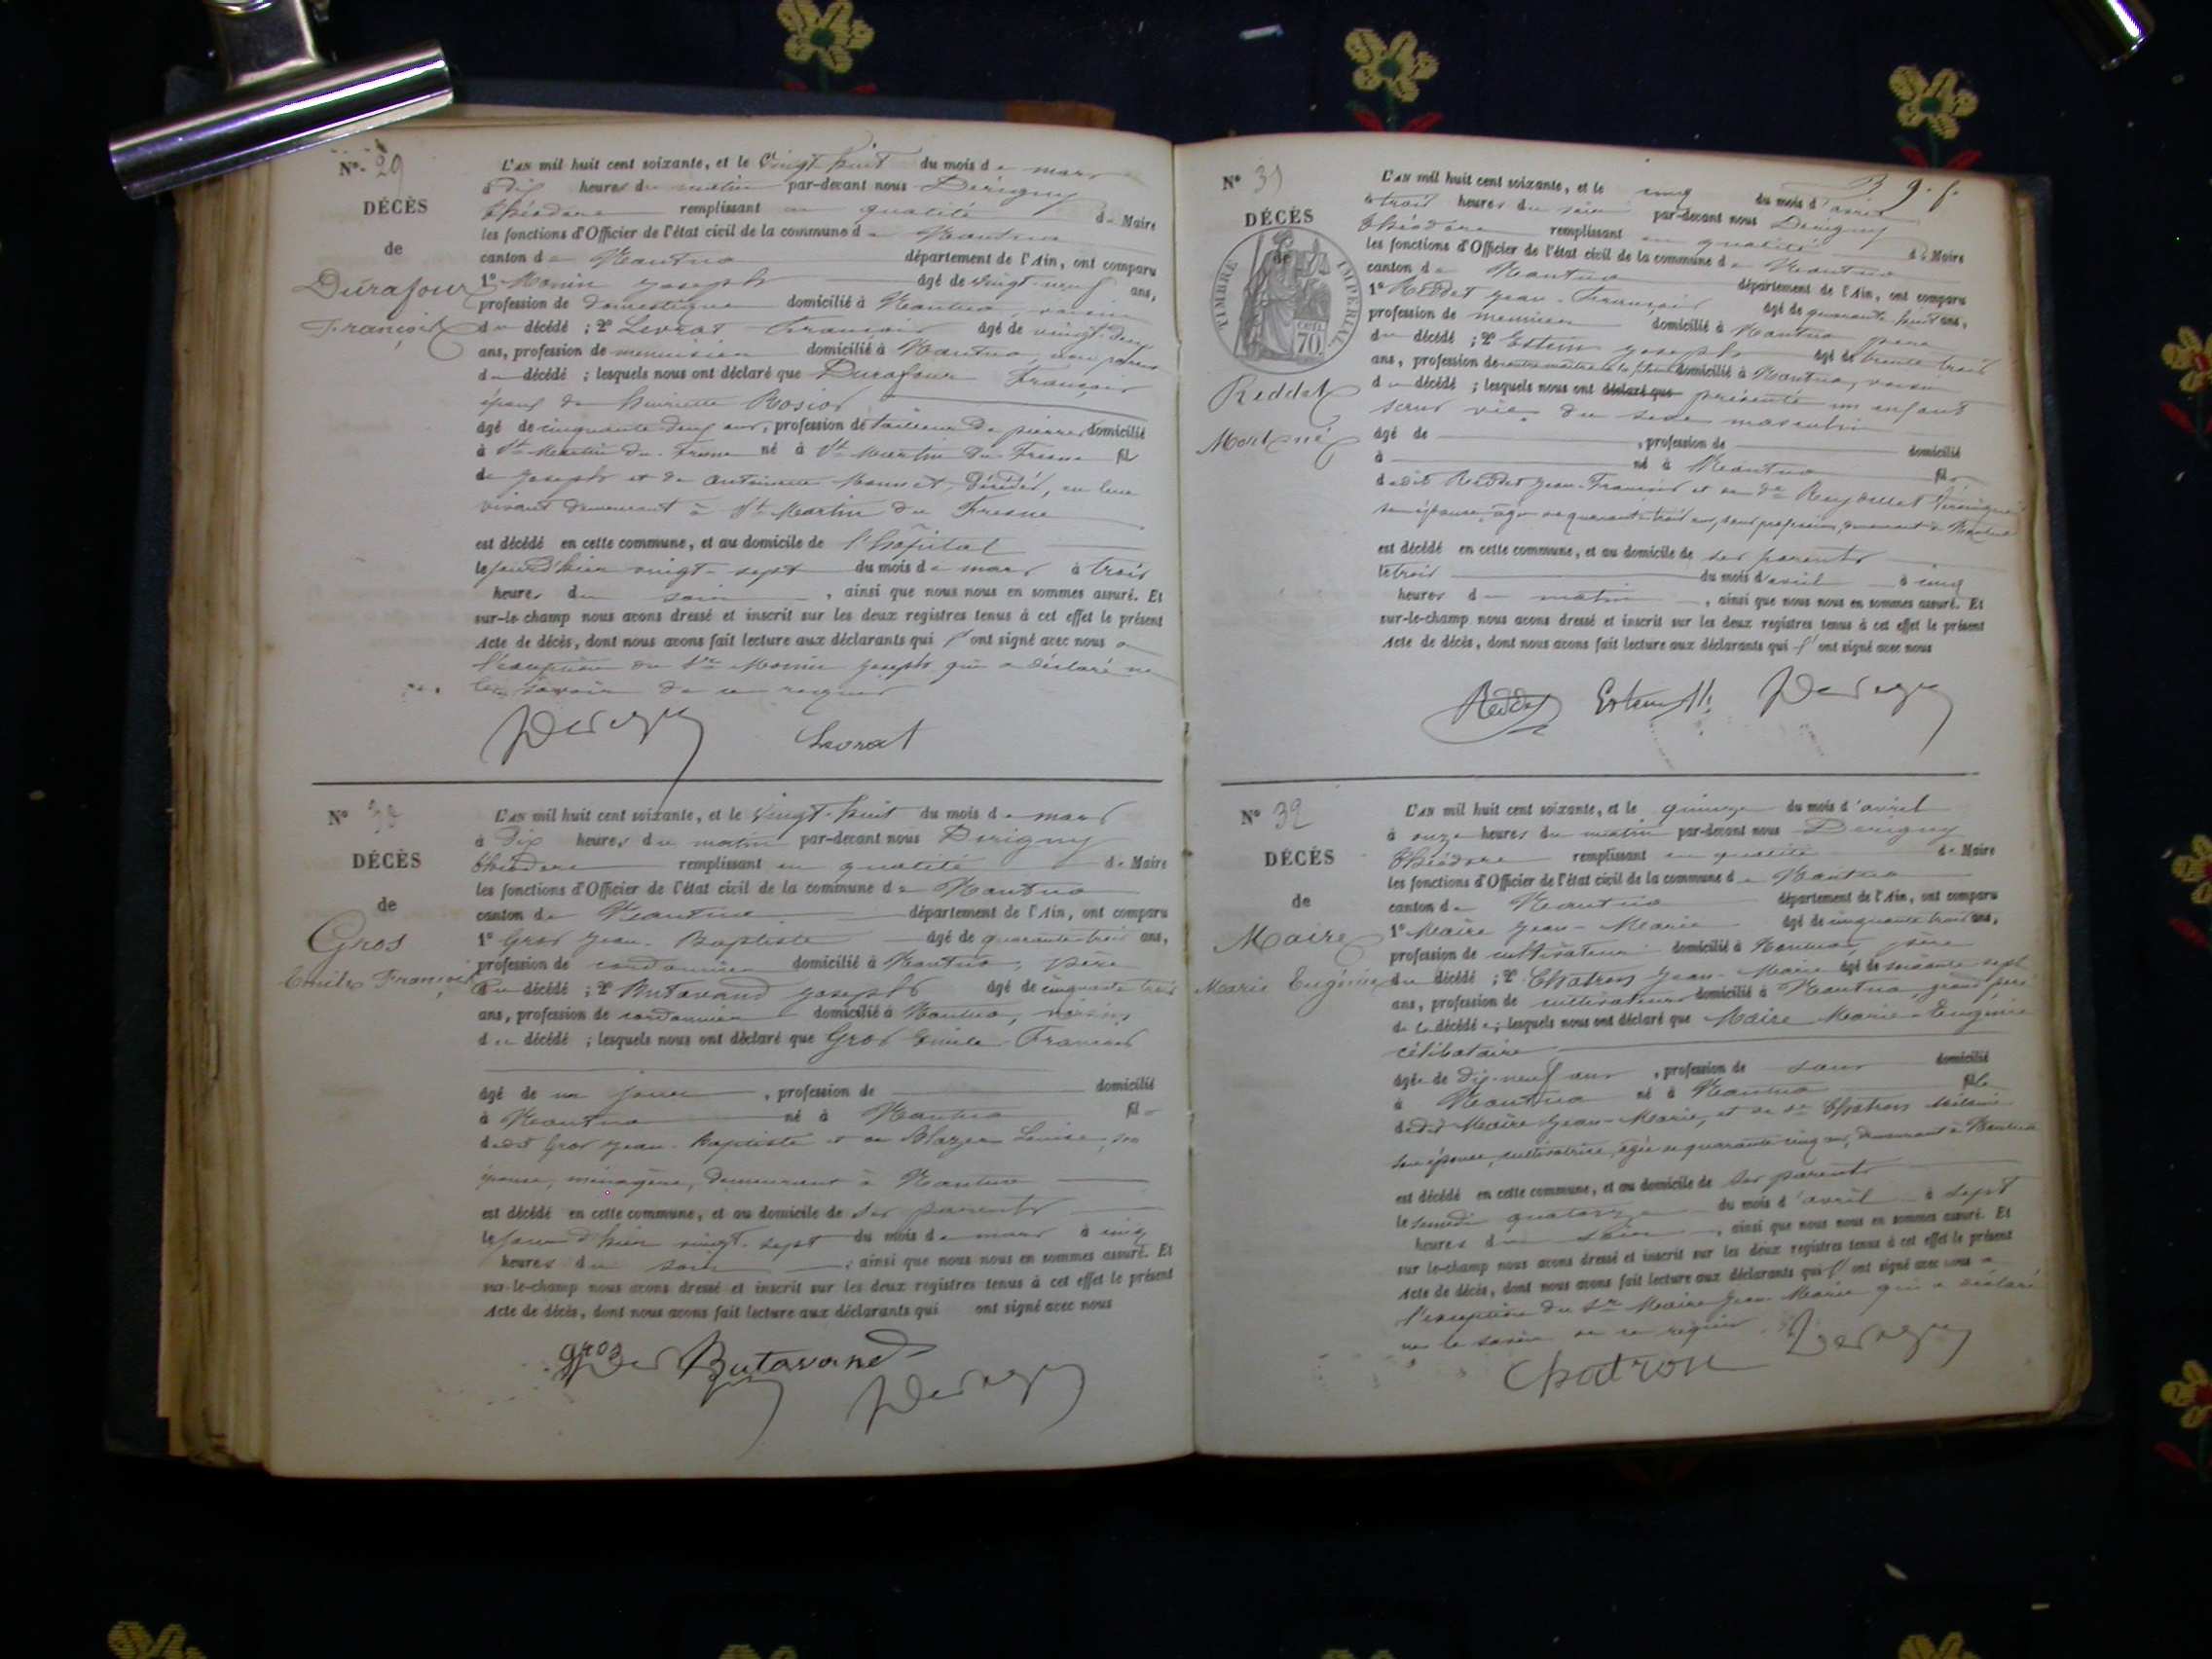 N° 29
DÉCÈS
de
Durafour
François
L'AN mil huit cent soixante, et le Vingt huit du mois de mars
à dix heures du matin par-devant nous Derigny
théodore remplissant en qualité de Maire
les fonctions d'Officier de l'état civil de la commune de Nantua
canton de Nantua département de l'Ain, ont comparu
1° Monin joseph âgé de vingt-neuf ans,
profession de domestique domicilié à Nantua, voisin
du décédé ; 2° Levrat François âgé de vingt-deux
ans, profession de menuisier domicilié à Nantua, non parent
du décédé ; lesquels nous ont déclaré que Durafour François
époux de henriette
âgé de cinquante deux ans, profession de tailleur de pierres domicilié
à St Martin du Fresne né à St Martin du Fresne fils
de joseph et de antoinette Monnet, décédés, en leur
vivant demeurant à St Martin du Fresne
est décédé en cette commune, et au domicile de l'hôpital
le jour d'hier vingt-sept du mois de mars à trois
heures du soir, ainsi que nous nous en sommes assuré. Et
sur-le-champ nous avons dressé et inscrit sur les deux registres tenus à cet effet le présent
Acte de décès, dont nous avons fait lecture aux déclarants qui l'ont signé avec nous à
l'exception du Sr Monin joseph qui a déclaré ne
le savoir de ce requis
Levrat
N°
DÉCÈS
de
Gros
Emile François
L'AN mil huit cent soixante, et le vingt-huit du mois de mars
à dix heures du matin par-devant nous Derigny
théodore remplissant en qualité de Maire
les fonctions d'Officier de l'état civil de la commune de Nantua
canton de Nantua département de l'Ain, ont comparu
1° Gros jean-Baptiste âgé de quarante-trois ans,
profession de cordonnier domicilié à Nantua, père
du décédé ; 2° Butavand joseph âgé de cinquante trois
ans, profession de cordonnier domicilié à Nantua, voisin
du décédé ; lesquels nous ont déclaré que Gros Emile François
âgé de un jour, profession de domicilié
à Nantua né à Nantua fils
dudit Gros jean-Baptiste et de Louise, son
épouse, ménagère, demeurant à Nantua
est décédé en cette commune, et au domicile de ses parents
le jour d'hier vingt-sept du mois de mars à cinq
heures du soir, ainsi que nous nous en sommes assuré. Et
sur-le-champ nous avons dressé et inscrit sur les deux registres tenus à cet effet le présent
Acte de décès, dont nous avons fait lecture aux déclarants qui ont signé avec nous
gros Butavand
N° 31
DÉCÈS
de
TIMBRE IMPÉRIAL
CENT. 70
Reddet
Mort né
L'AN mil huit cent soixante, et le cinq du mois d'avril
à trois heures du soir par-devant nous Derigny
théodore remplissant en qualité de Maire
les fonctions d'Officier de l'état civil de la commune de Nantua
canton de Nantua département de l'Ain, ont comparu
1° Reddet jean-François âgé de quarante huit ans,
profession de menuisier domicilié à Nantua père
du décédé ; 2° joseph âgé de trente trois
ans, profession de domicilié à Nantua, voisin
du décédé ; lesquels nous ont déclaré que présenté un enfant
sans vie du sexe masculin
âgé de , profession de domicilié
à né à Nantua fils
dudit Reddet jean-François et de
son épouse, âgée de quarante-trois ans, sans profession, demeurant à Nantua
est décédé en cette commune, et au domicile de ses parents
le trois du mois d'avril à cinq
heures du matin, ainsi que nous nous en sommes assuré. Et
sur-le-champ nous avons dressé et inscrit sur les deux registres tenus à cet effet le présent
Acte de décès, dont nous avons fait lecture aux déclarants qui l'ont signé avec nous
Reddet
N° 32
DÉCÈS
de
Maire
Marie Eugénie
L'AN mil huit cent soixante, et le quinze du mois d'avril
à onze heures du matin par-devant nous Derigny
théodore remplissant en qualité de Maire
les fonctions d'Officier de l'état civil de la commune de Nantua
canton de Nantua département de l'Ain, ont comparu
1° Maire jean-Marie âgé de cinquante trois ans,
profession de cultivateur domicilié à Nantua, père
du décédé ; 2° Chatron jean-Marie âgé de soixante sept
ans, profession de cultivateur domicilié à Nantua, grand père
de la décédée ; lesquels nous ont déclaré que Maire Marie-Eugénie
célibataire
âgée de dix-neuf ans, profession de sans domicilié
à Nantua né à Nantua fille
dudit Maire jean-Marie, et de de Chatron
son épouse, cultivatrice, âgée de quarante cinq ans, demeurant à Nantua
est décédé en cette commune, et au domicile de ses parents
le samedi quatorze du mois d'avril à sept
heures du soir, ainsi que nous nous en sommes assuré. Et
sur le-champ nous avons dressé et inscrit sur les deux registres tenus à cet effet le présent
Acte de décès, dont nous avons fait lecture aux déclarants qui l'ont signé avec nous à
l'exception du Sr Maire jean Marie qui a déclaré
ne le savoir de ce requis
Chatron